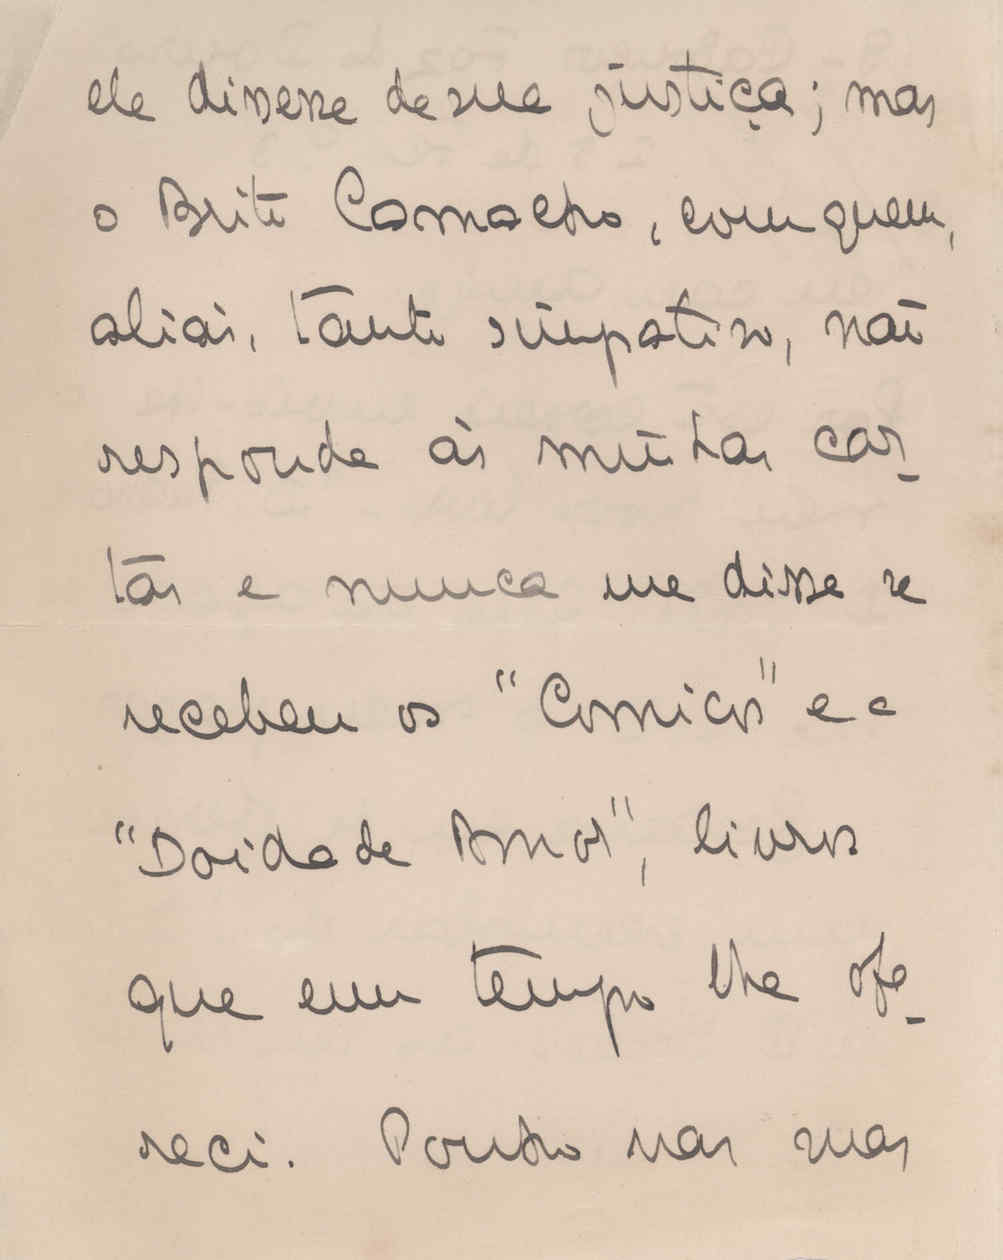 ele dissesse de sua justiça; mas
o Brito Camacho, com quem,
aliás, tanto simpatiso, não
responde às minhas car-
tas e nunca me disse se
recebeu os "Comicos" e a
"Doida de Amor", livros
que em tempo lhe ofe-
reci. Ponho nas suas